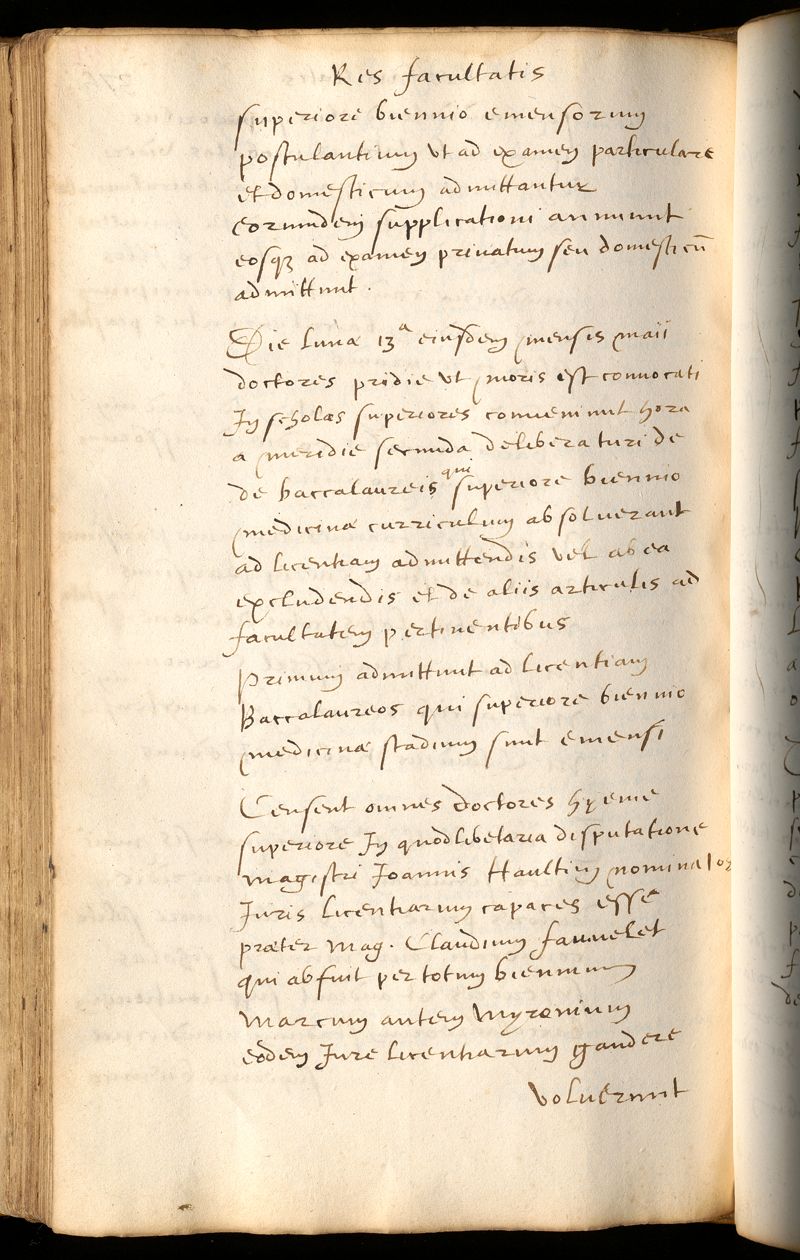 Res facultatis
superiore biennio emensorum
postulantium ut ad examen particulare
et domesticum admittantur
eorumdem supplicationi annuunt
eosq; ad examen privatum seu domesticū
admittunt.
Die lunæ 13ª eiusdem mensis maii
doctores pridie ut moris est convocati
In scholas superiores conveniunt hora
a meridie secunda deliberaturi de
de baccalaureis qui superiore biennio
medicinæ curriculum absolverant
ad licentiam admittendis vel ab ea
excludendis et de aliis articulis ad
facultatem pertinentibus
Primum admittunt ad licentiam
Baccalaureos qui superiore biennio
medicinæ stadium sunt emensi
Censent omnes doctores hyeme
superiore In quodlibetaria disputatione
magistri Joannis Haultin nominatos
Iuris licentiarum capaces esse
præter mag. Claudium fauvelet
qui abfuit per totum biennium
Marcum autem Myronium
eodem Jure licentiarum gaudere
voluerunt